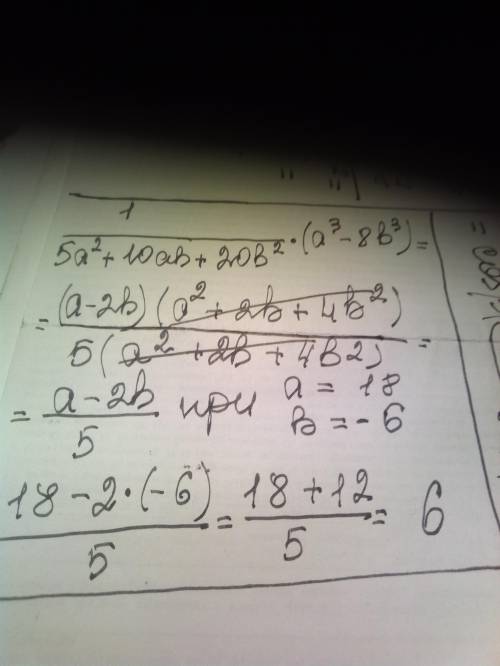 1/(5a²+10ab+20b²)·(a³-8b³)=
=(a-2b)(a²+2b+4b²)/5(a²+2b+4b2)=
=a-2b/5 при a=18
b=-6
18-2·(-6)/5=18+12/5=6